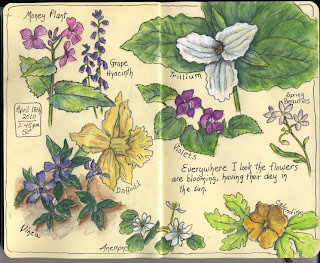 Money Plant
Grape
Hyacinth
April
2010
2:45 pm
50°
Daffodil
Vinca
Anemone
Trillium
Spring
Beauties
Violets
Everywhere I look the flowers
are blooming, having their day in
the sun.